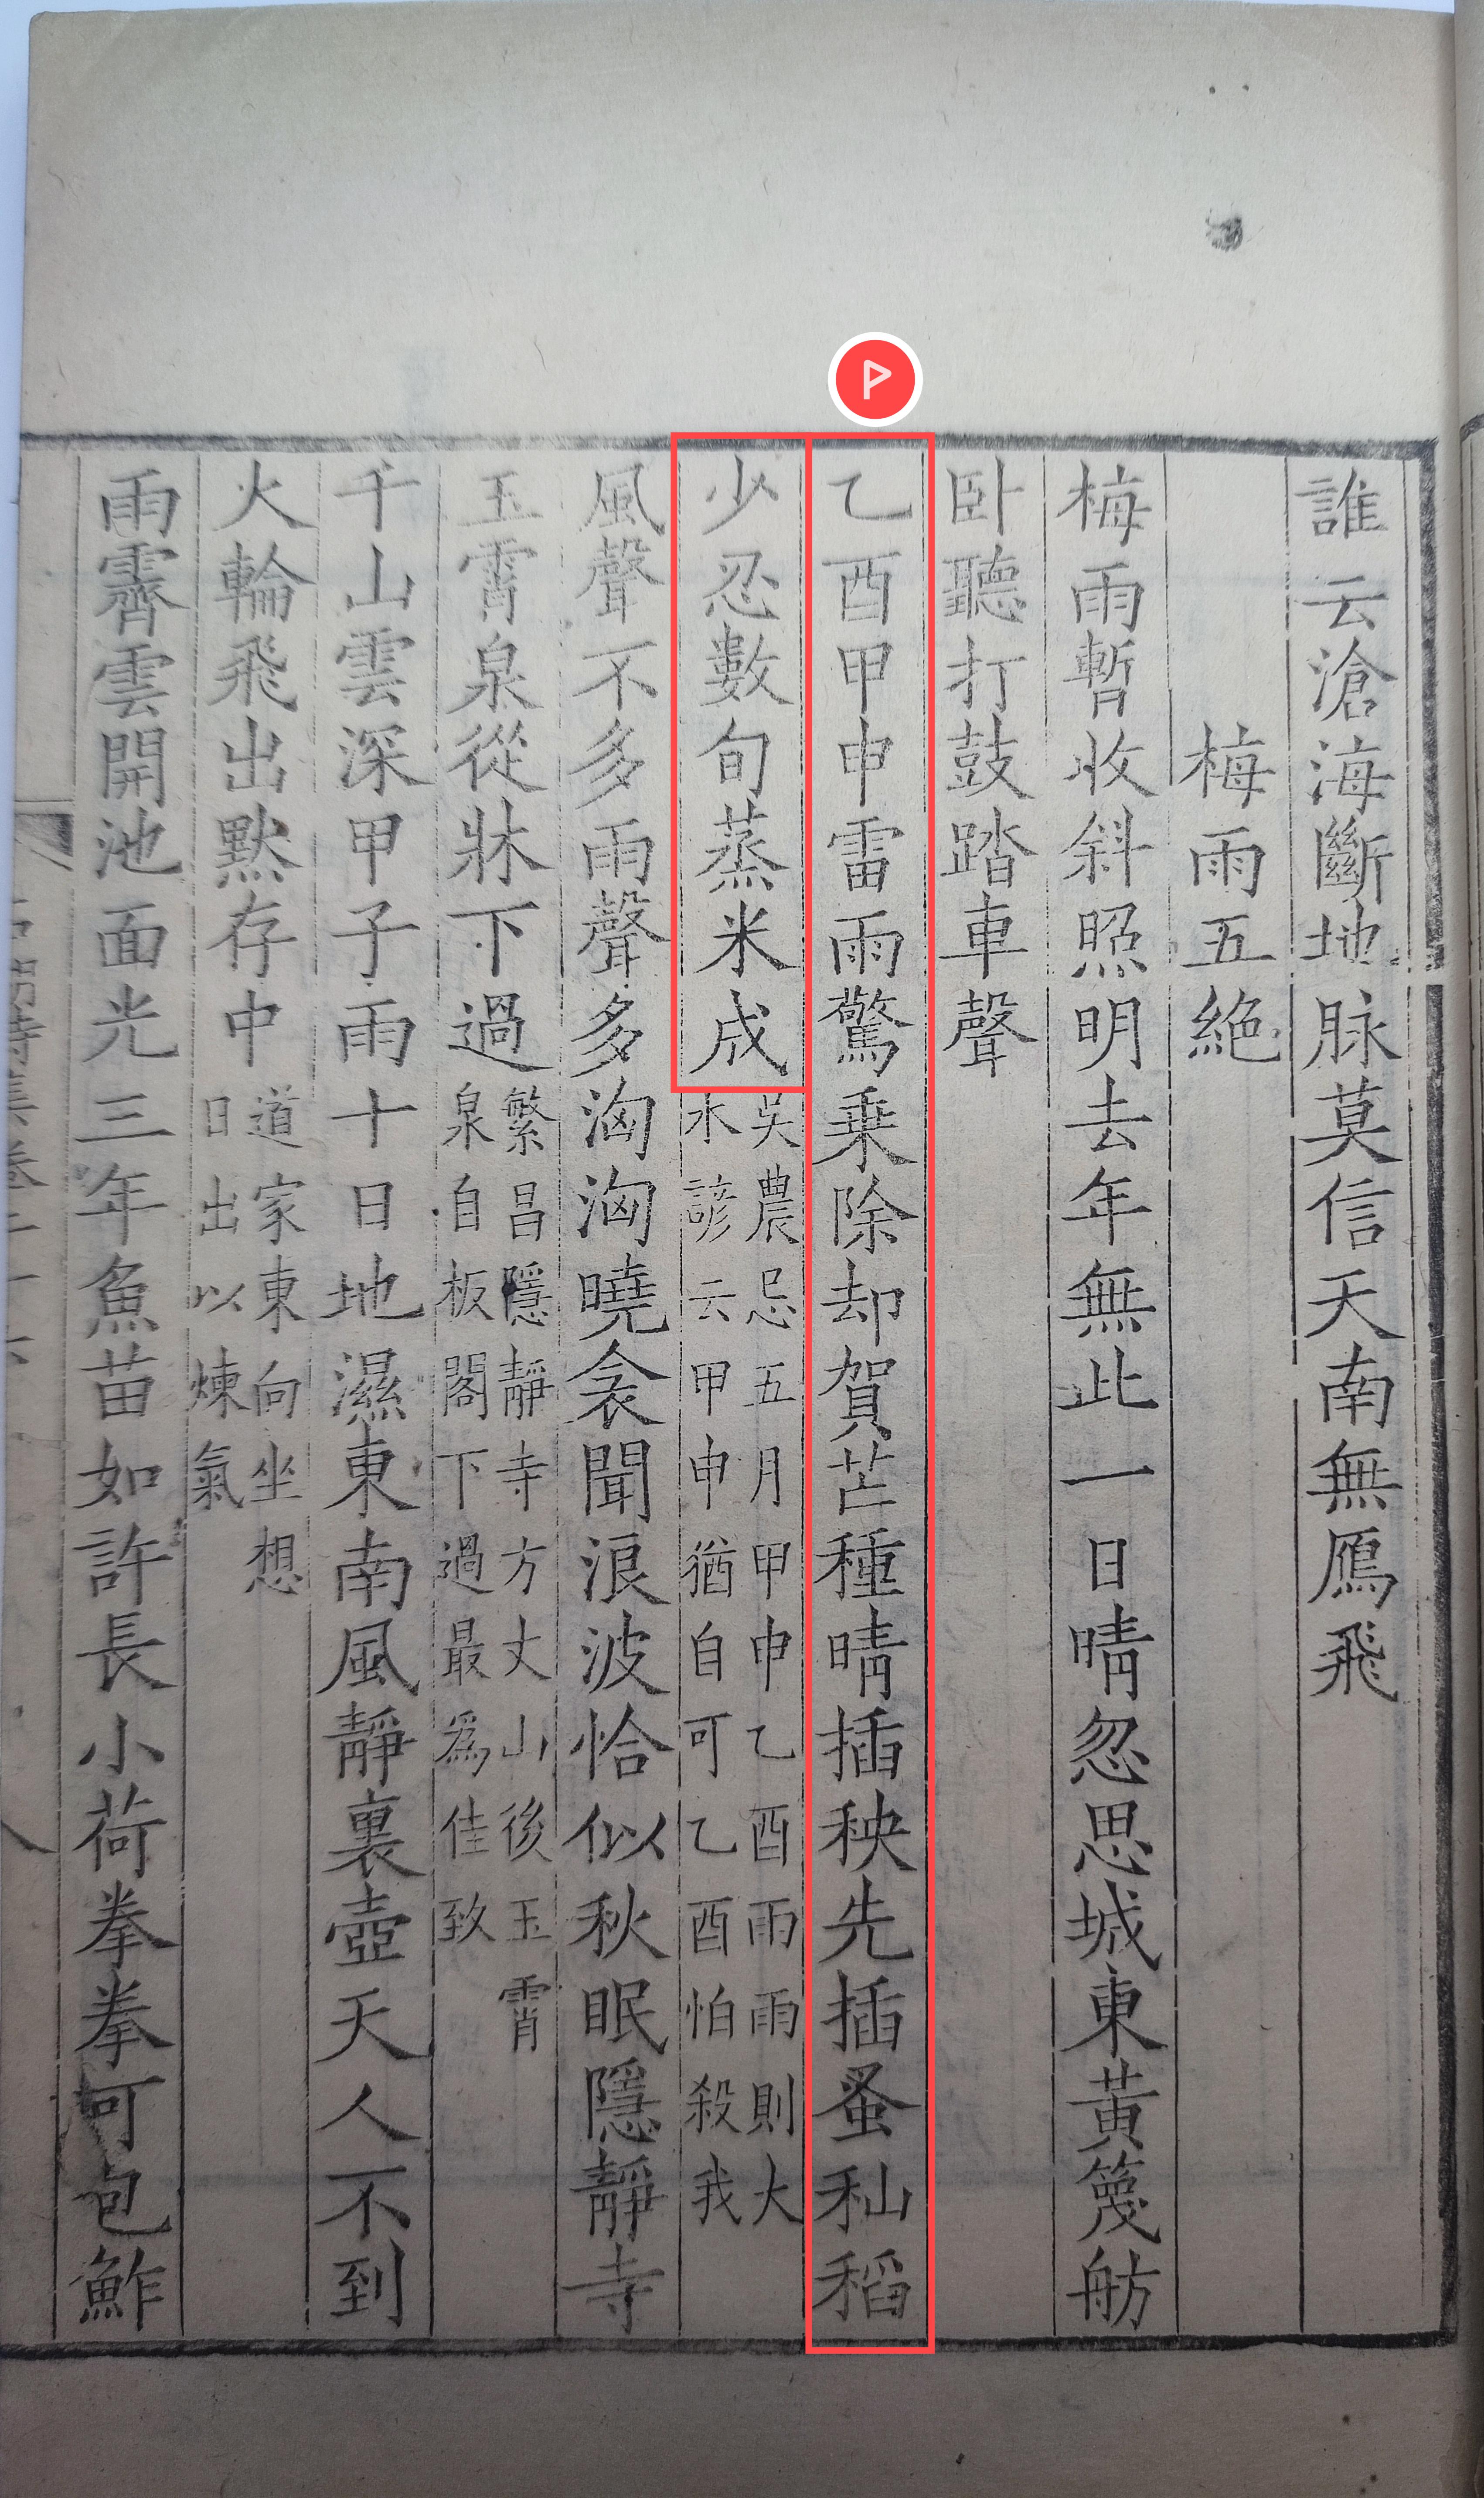 誰云滄海斷地脉莫信天南無鴈飛
梅雨五絶
梅雨暫收斜照明去年無此一日晴忽思城東黃篾舫
卧聽打鼓踏車聲
乙酉甲申雷雨驚乗除却賀芒種晴插秧先插蚤秈稻
少忍數旬蒸米成
吴農忌五月甲申乙酉雨雨則大
水諺云甲申猶自可乙酉怕殺我
風聲不多雨聲多洶洶曉衾聞浪波恰似秋眠隱靜寺
玉霄泉從牀下過
繁昌隱靜寺方丈山後玉霄
泉自板閣下過最爲佳致
千山雲深甲子雨十日地濕東南風靜裏壺天人不到
火輪飛出默存中
道家東向坐想
日出以煉氣
雨霽雲開池面光三年魚苗如許長小荷拳拳可包鮓